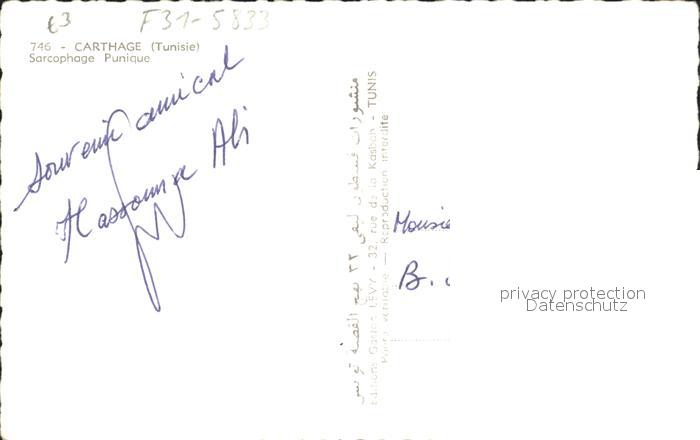 €3 F31-5833
746 - CARTHAGE (Tunisie)
Sarcophage Punique
Souvenir amical
Hassouna Ali
منشورات قسطون ليفي ٣٢ نهج القصبة تونس
Editions Gaston LÉVY - 32, rue de la Kasbah - TUNIS
Photo véritable — Reproduction interdite
Monsie
B.
privacy protection
Datenschutz